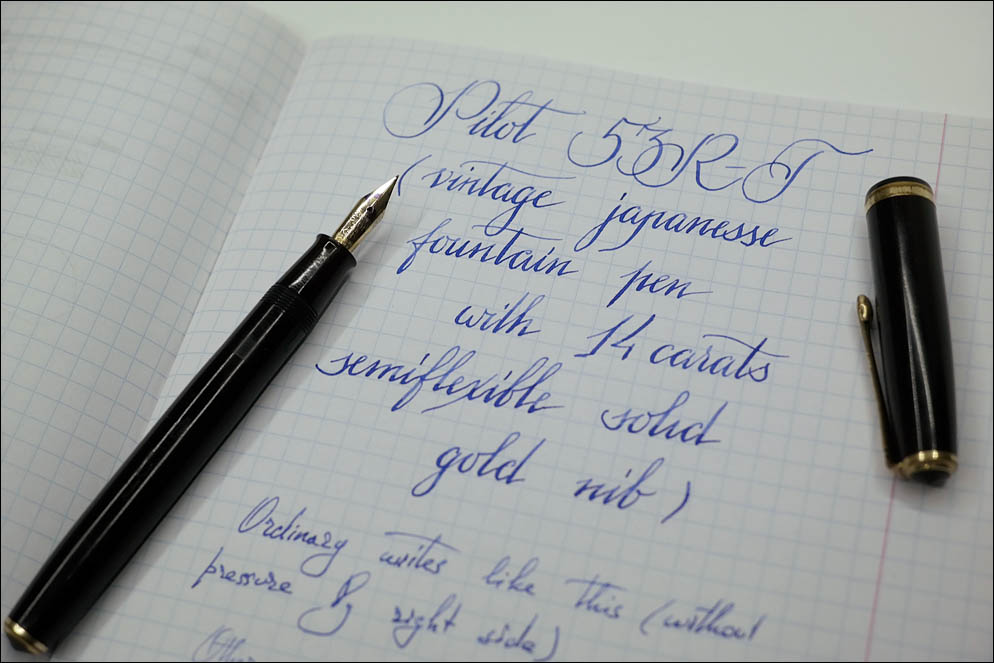 Pilot 53R-T
(vintage japanesse
fountain pen
with 14 carats
semiflexible solid
gold nib)
Ordinary writes like this (without
pressure & right side)